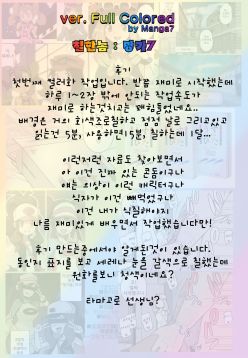 ver. Full Colored
by Manga7
친한놈 : 망가7
후기
첫번째 컬러화 작업입니다. 반쯤 재미로 시작했는데
하루 1~2장 밖에 안되는 작업속도가
재미로 하는것치고는 꽤힘들었네요..
배경은 거의 회색으로칠하고 점점 날로 그리고있고
읽는건 5분, 사용하면15분, 칠하는데 1달...
이런저런 자료도 찾아보면서
아 이건 진짜 있는 폰들이구나
얘는 의상이 이런 캐릭터구나
식자가 이건 빼먹었구나
이건 내가 식칠해야지
나름 재미있게 배우면서 작업했습니다만!
후기 만드는중에서야 알게된것이 있습니다.
동인지 표지를 보고 세레나 눈을 갈색으로 칠했는데
원화를보니 청색이네요?
타마고로 선생님?